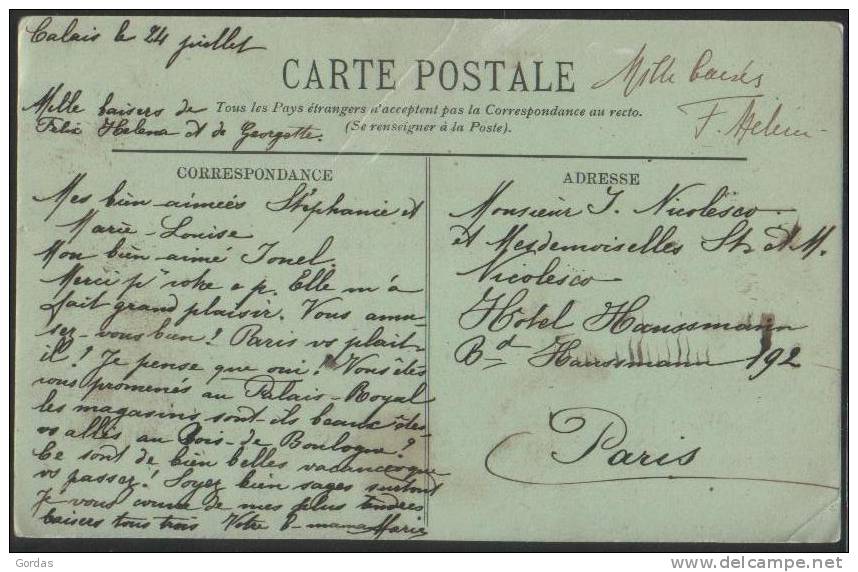 Calais le 24 juillet
CARTE POSTALE
Mille baisés
F. Helen
Mille baisers de
Felix Helena et de Georgette.
Tous les Pays étrangers n'acceptent pas la Correspondance au recto.
(Se renseigner à la Poste).
CORRESPONDANCE
Mes bien-aimées Stéphanie et
Marie-Louise
Mon bien-aimé Ionel.
Merci pr votre c p. Elle m'a
fait grand plaisir. Vous amu-
sez-vous bien? Paris vs plait-
il? Je pense que oui! Vous êtes
vous promenés au Palais-Royal
les magasins sont-ils beaux êtes-
vs allés au Bois-de Boulogne?
Ce sont de bien belles vacances que
vs passez. Soyez bien sages surtout
Je vous couvre de mes plus tendres
baisers tous trois Votre maman Marie
ADRESSE
Monsieur I. Nicolesco
et Mesdemoiselles St. et M.
Nicolesco
Hôtel Haussmann
Bd Haussmann 192
Paris
Gordas
www.delcampe.net